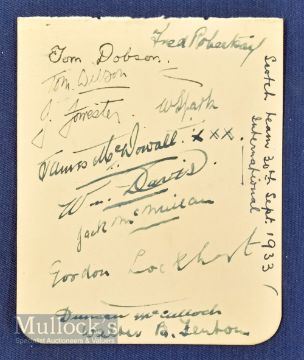 Fred Robertson
Tom Dobson.
Tom Wilson
J. Forrester. W Spark
James McDowall. xxx.
Wm. Davis.
Jack McMillan
Gordon Lockhart
Duncan McCulloch
B. Fenton
Scotch team 30th Sept. 1933
International
Mullock's
Specialist Auctioneers & Valuers